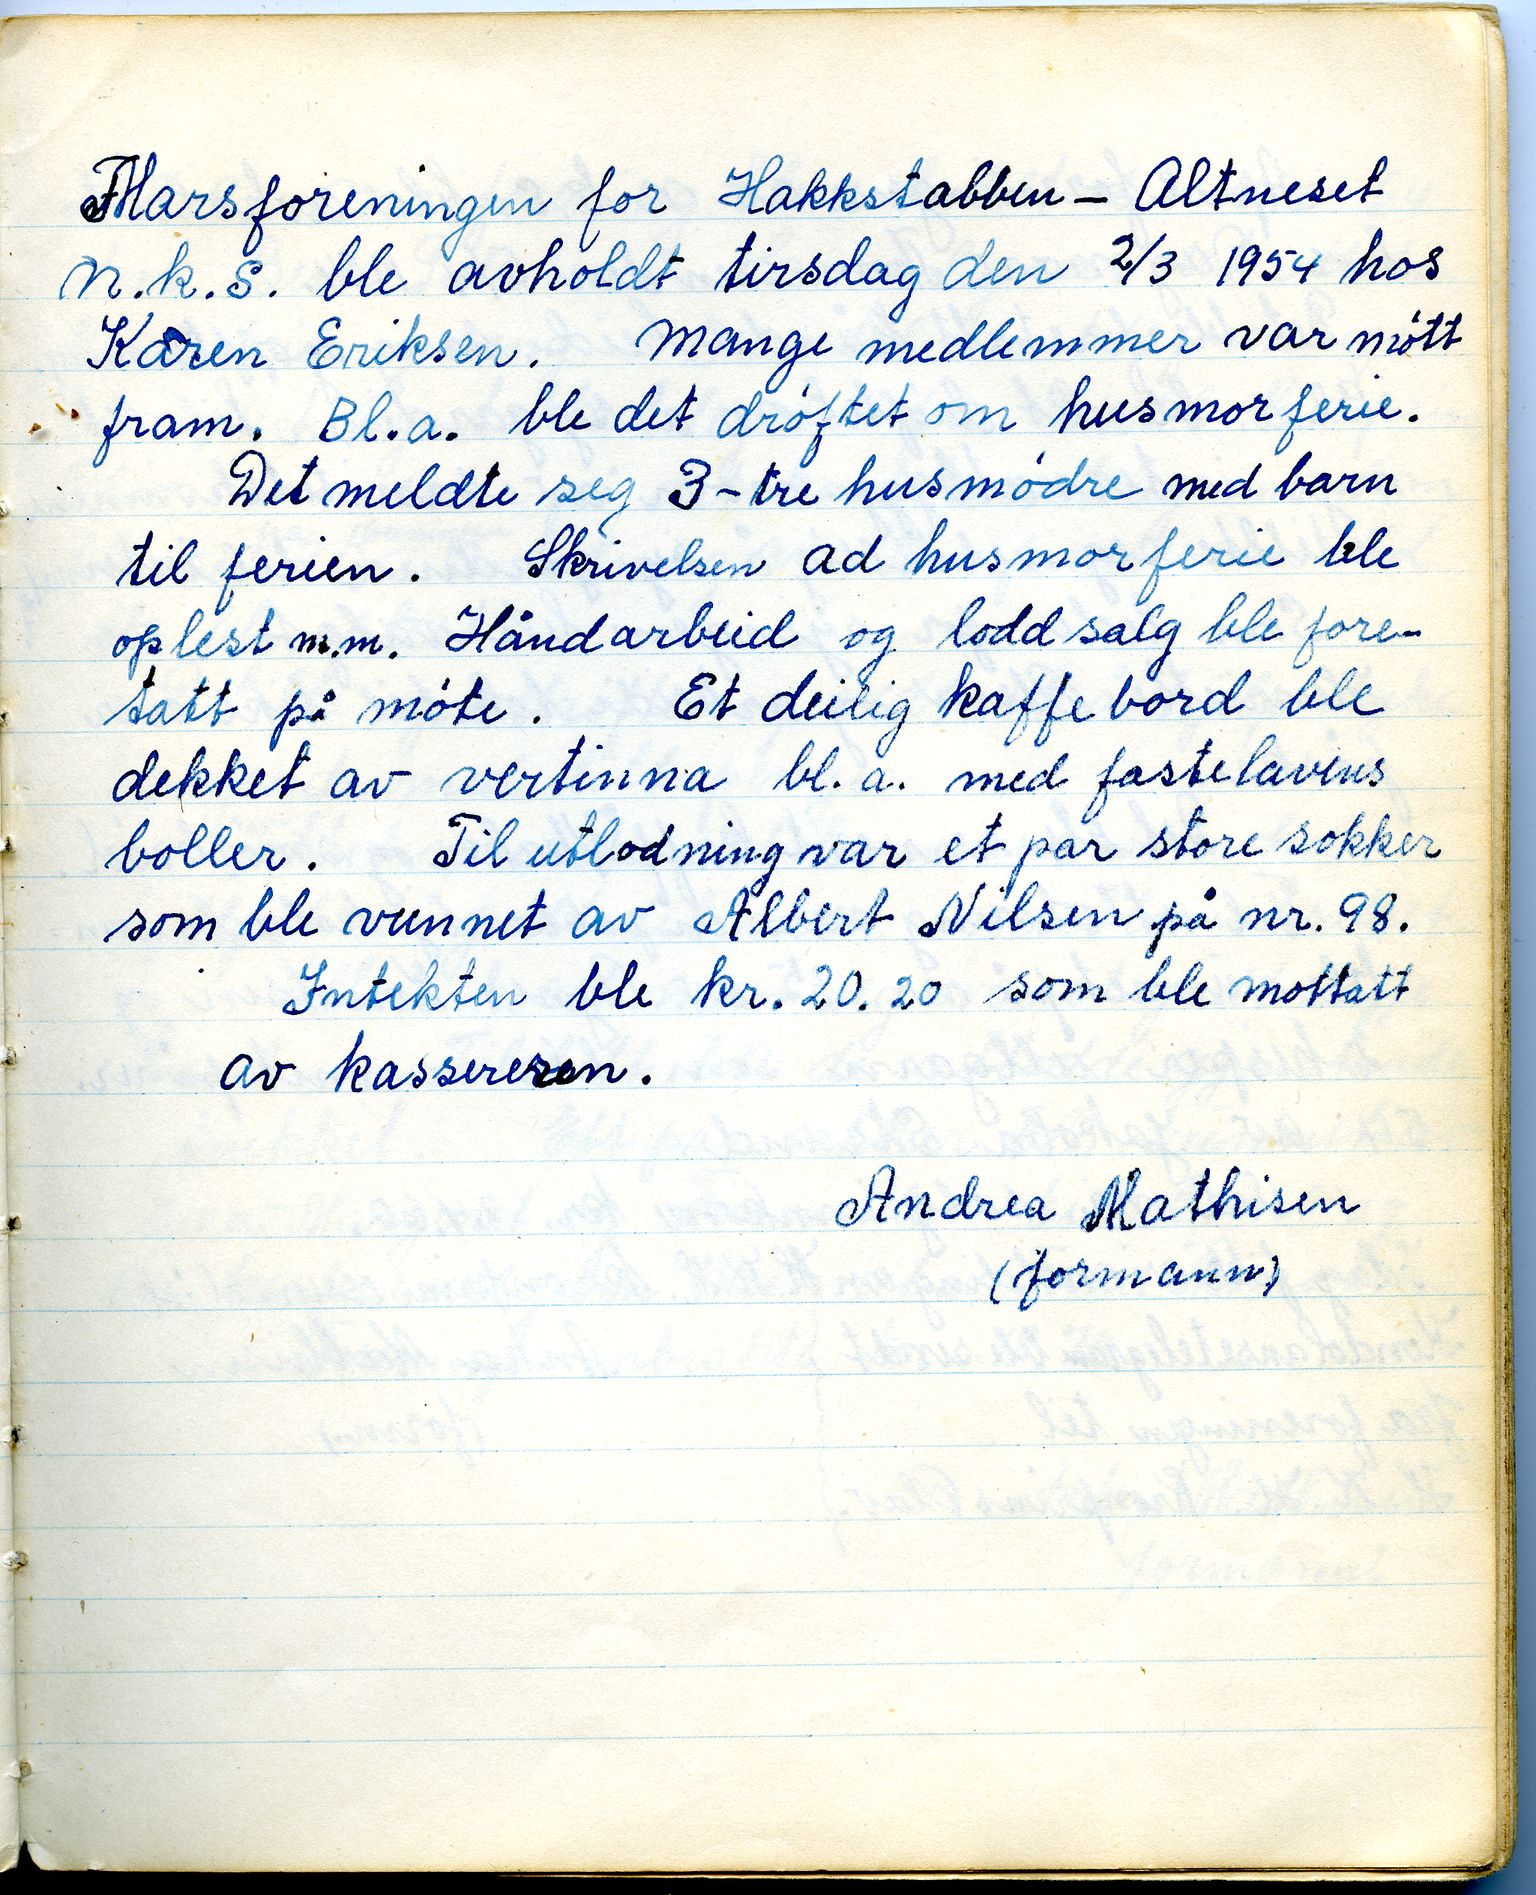 Marsforeningen for Hakkstabben - Altneset
N.k.S. ble avholdt tirsdag den 2/3 1954 hos
Karen Eriksen. Mange medlemmer var møtt
fram. Bl.a. ble det drøftet om husmorferie.
Det meldte seg 3-tre husmødre med barn
til ferien. Skrivelsen ad husmorferie ble
oplest m.m. Håndarbeid og loddsalg ble fore-
tatt på møte. Et deilig kaffebord ble
dekket av vertinna bl.a. med fastelavens
boller. Til utlodning var et par store sokker
som ble vunnet av Albert Nilsen på nr. 98.
Intekten ble kr. 20.20 som ble mottatt
av kassereren.
Andrea Mathisen
(formann)